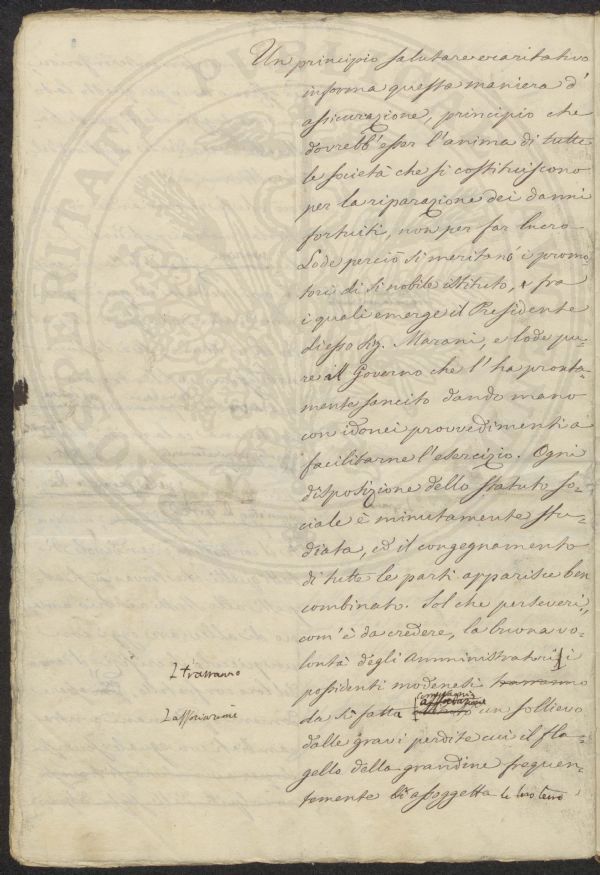 Un principio salutare e caritativo
informa questa maniera d'
assicurazione, principio che
dovrebb'esser l'anima di tutte
le società che si costituiscono
per la riparazione dei danni
fortuiti, non per far lucro.
Lode perciò si meritano i promo
tori di sì nobile istituto, e fra
i quali emerge il Presidente
di esso Sig. Marani, e lode pu-
re al Governo che l'ha pronta-
mente sancito dando mano
con idonei provvedimenti a
facilitarne l'esercizio. Ogni
disposizione dello statuto so-
ciale è minutamente stu-
diata, ed il congegnamento
di tutte le parti apparisce ben
combinato. Sol che perseveri,
com'è da credere, la buona vo-
lontà degli Amministratori, i
possidenti modenesi trarranno
trarranno
da sì fatta associazione un sollievo
associazione
dalle gravi perdite cui il fla-
gello della grandine frequen-
temente assoggetta le loro